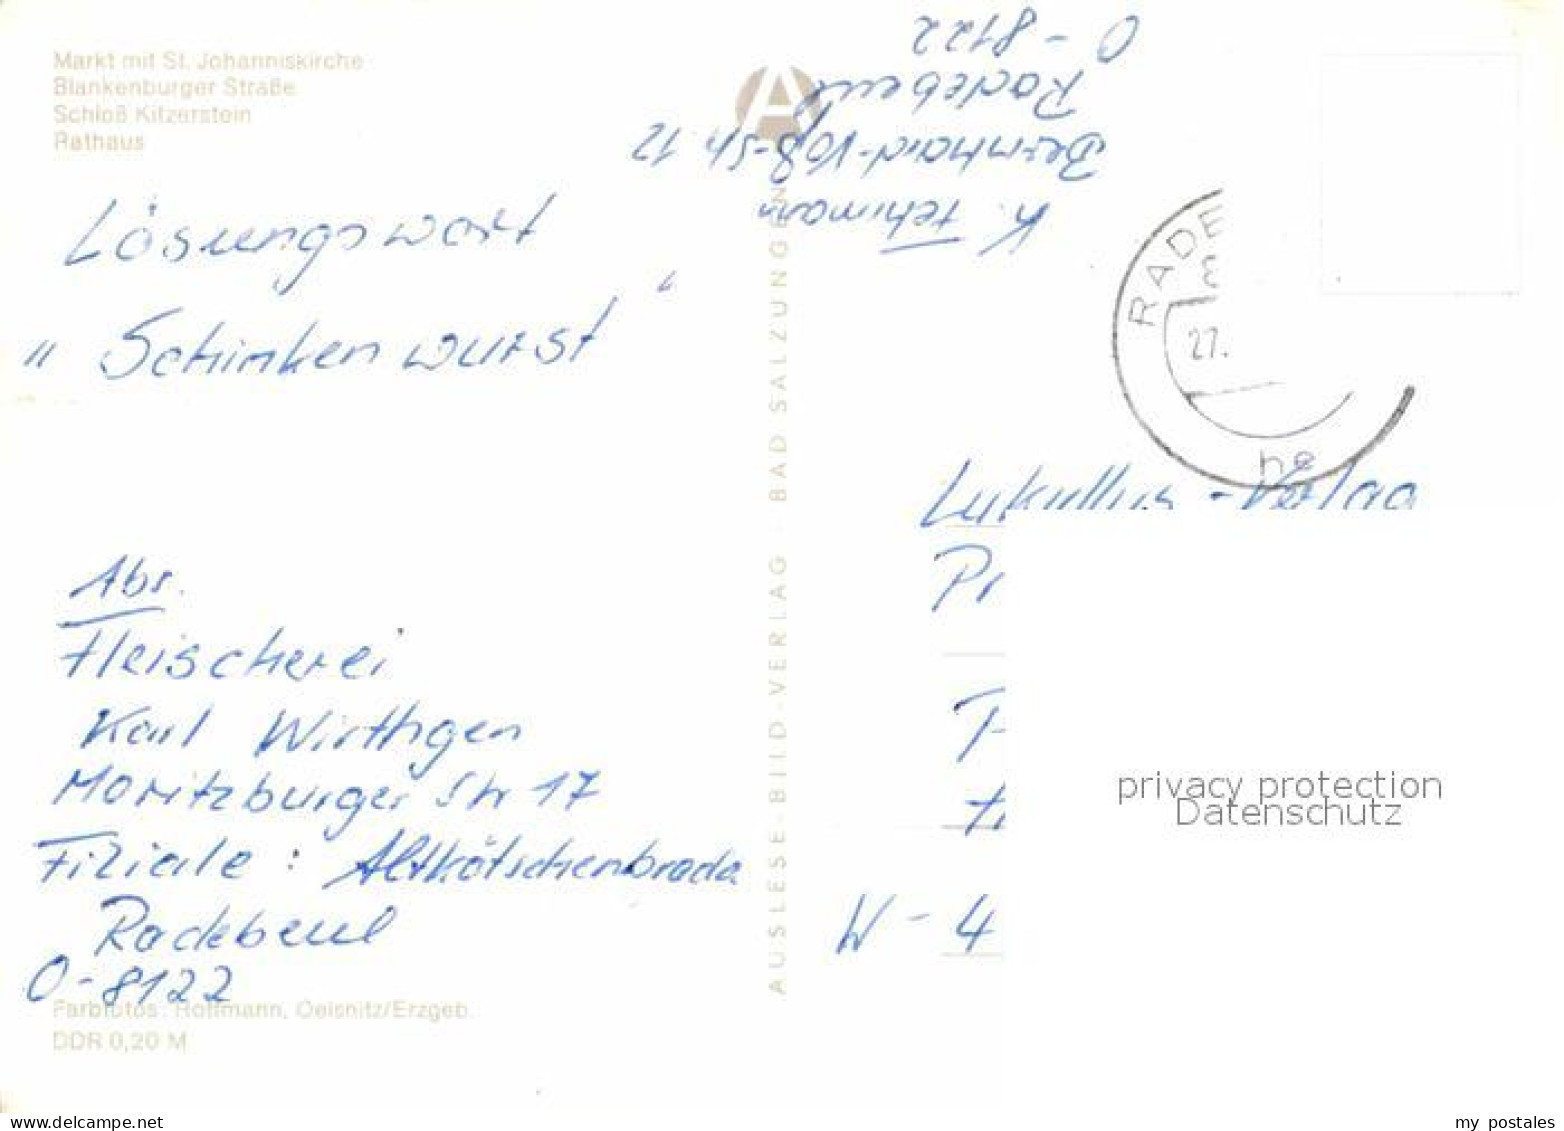 Markt mit St. Johanniskirche
Blankenburger Straße
Schloß Kitzerstein
Rathaus
Lösungswort
"Schinkenwurst"
Abs.
Fleischerei
Karl Wirthgen
Moritzburger Str 17
Filiale: Altkötschenbroda
Radebeul
O-8122
Farbfotos: Hoffmann, Oelsnitz/Erzgeb.
DDR 0,20 M
AUSLESE-BILD-VERLAG · BAD SALZUNGEN
A
K. Fehrmann
Bernhard-Voß-Str. 12
Radebeul
O-8122
RADE
27.
he
Lukullus-Verlag
W-4
privacy protection
Datenschutz
my postales